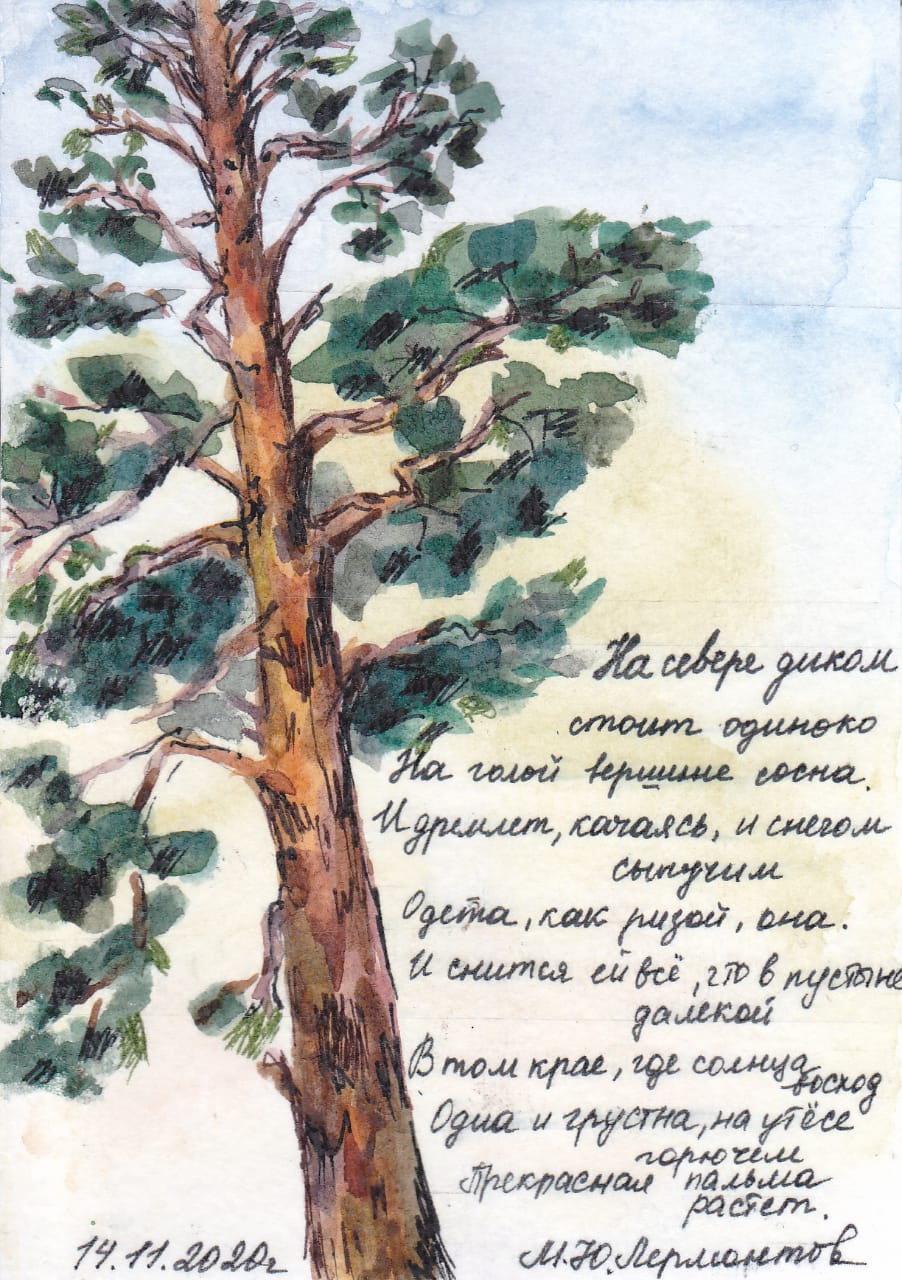 На севере диком
стоит одиноко
На голой вершине сосна.
И дремлет, качаясь, и снегом
сыпучим
Одета, как ризой, она.
И снится ей всё, что в пустыне
далекой
В том крае, где солнца
восход
Одна и грустна, на утёсе
горючем
Прекрасная пальма
растет.
14.11.2020г
М.Ю.Лермонтов